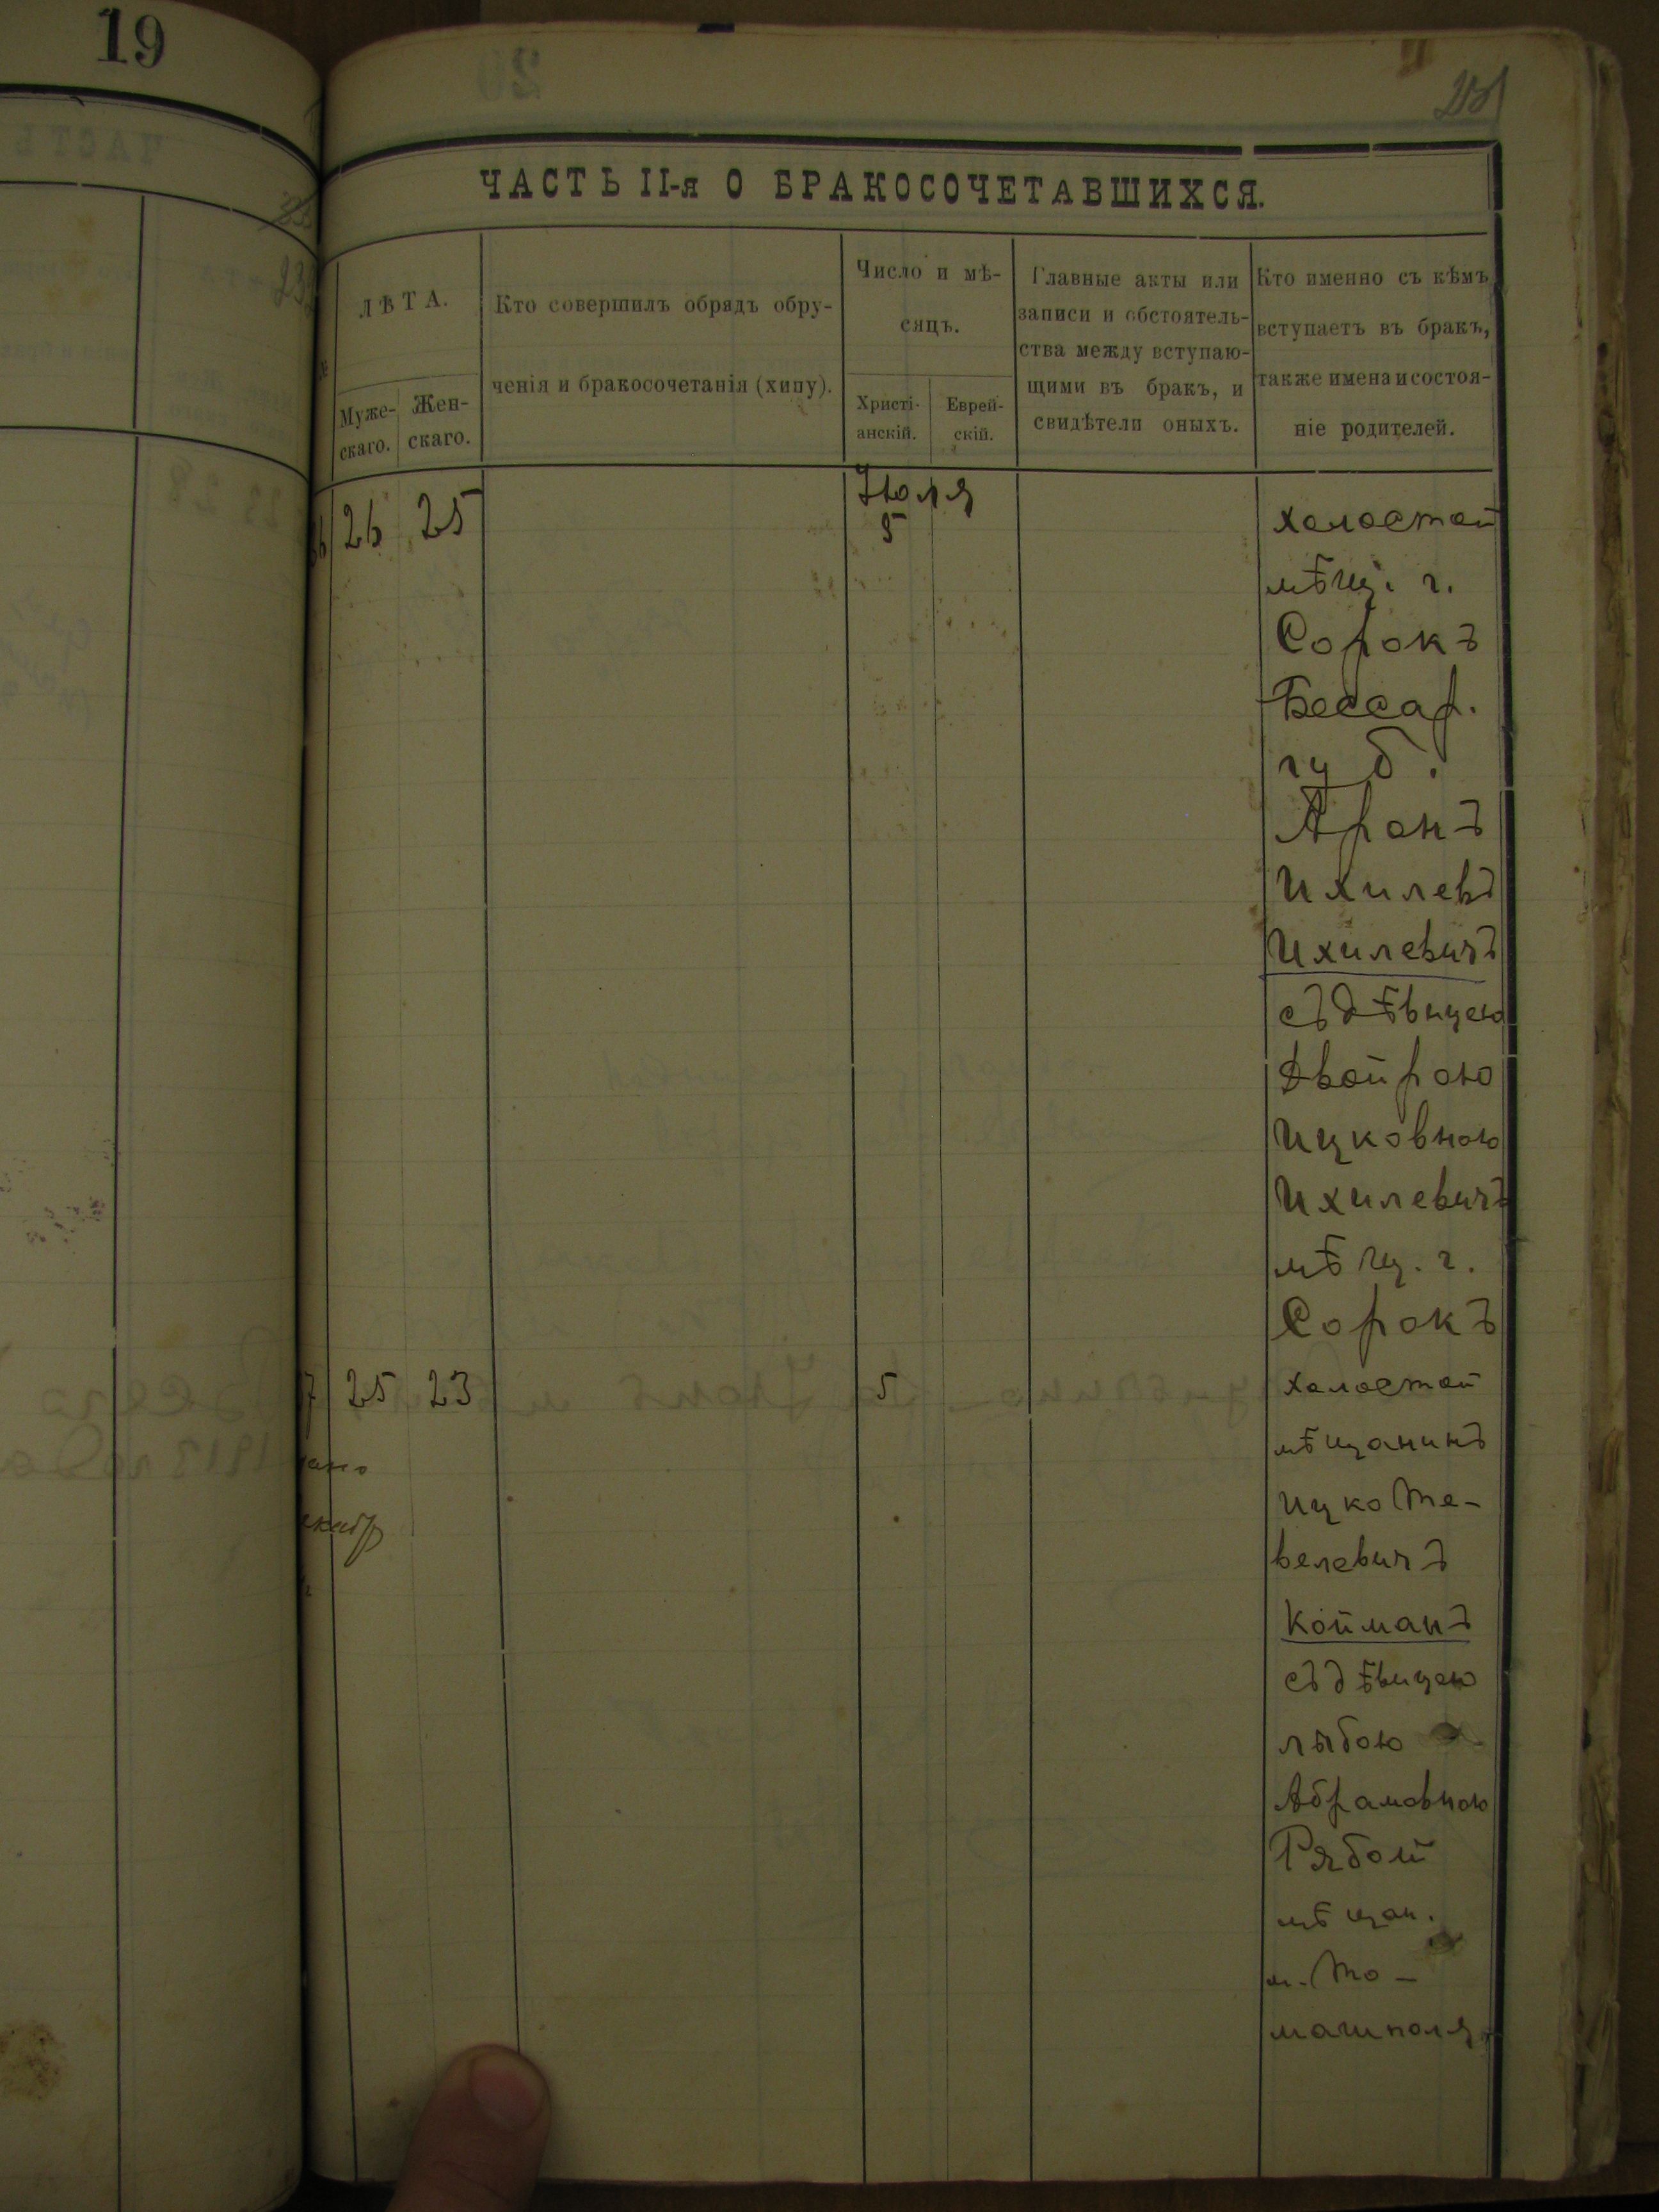 19
ЧАСТЬ II-я О БРАКОСОЧЕТАВШИХСЯ.
ЛѢТА.
Муже-
скаго.
Жен-
скаго.
Кто совершилъ обрядъ обру-
ченія и бракосочетанія (хипу).
Число и мѣ-
сяцъ.
Христі-
анскій.
Еврей-
скій.
Главные акты или
записи и обстоятель-
ства между вступаю-
щими въ бракъ, и
свидѣтели оныхъ.
Кто именно съ кѣмъ
вступаетъ въ бракъ,
также имена и состоя-
ніе родителей.
26 25
Июля
5
холостой
мѣщ. г.
Сорокъ
Бессар.
губ.
Аронъ
Ихилевъ
Ихилевичъ
съ дѣвицею
Двойрою
Ицковною
Ихилевичъ
мѣщ. г.
Сорокъ
25 23
5
холостой
мѣщанинъ
Ицко Те-
велевичъ
Койманъ
съ дѣвицею
Лыбою
Абрамовною
Рябой
мѣщан.
м. То-
машполя